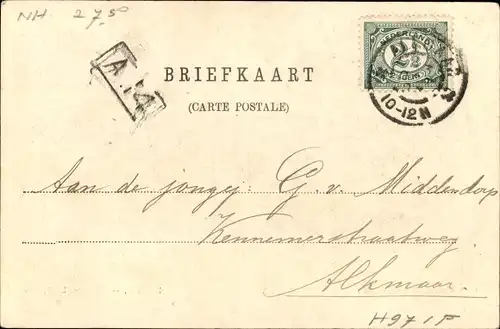 NH 27.50
A 14
NEDERLAND
2½
CENT
10-12 N
BRIEFKAART
(CARTE POSTALE)
Aan de jongej: G. v. Middendorp
Kennemerstraatweg
Alkmaar.
H971F